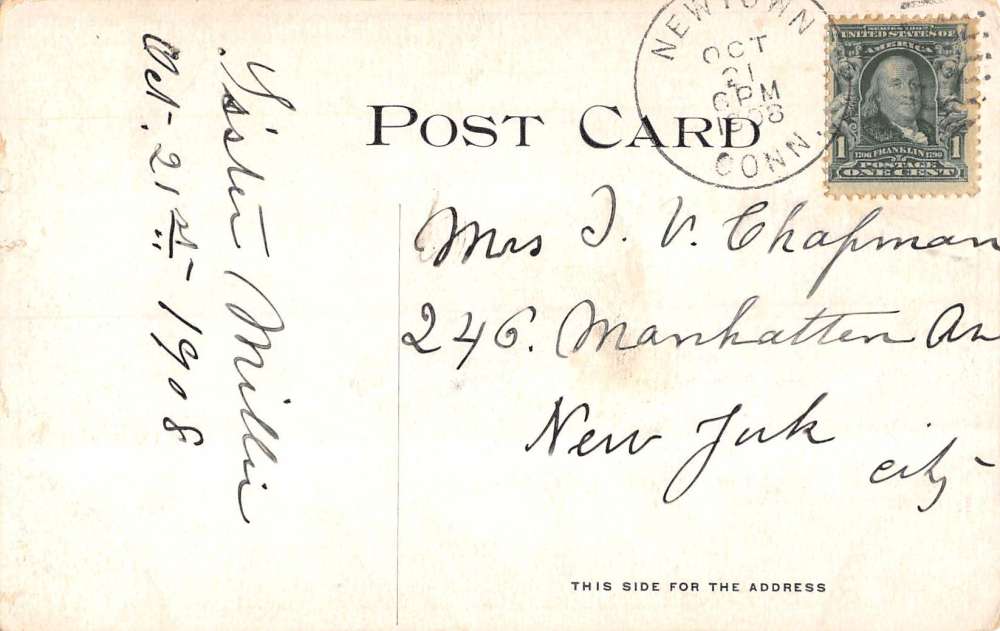 POST CARD
NEWTOWN
OCT
21
6 PM
1908
CONN.
SERIES 1902
UNITED STATES OF
AMERICA
1706 FRANKLIN 1790
1 POSTAGE 1
ONE CENT
Sister Millie
Oct. 21st 1908
Mrs J. V. Chapman
246. Manhatten Av
New York
City
THIS SIDE FOR THE ADDRESS